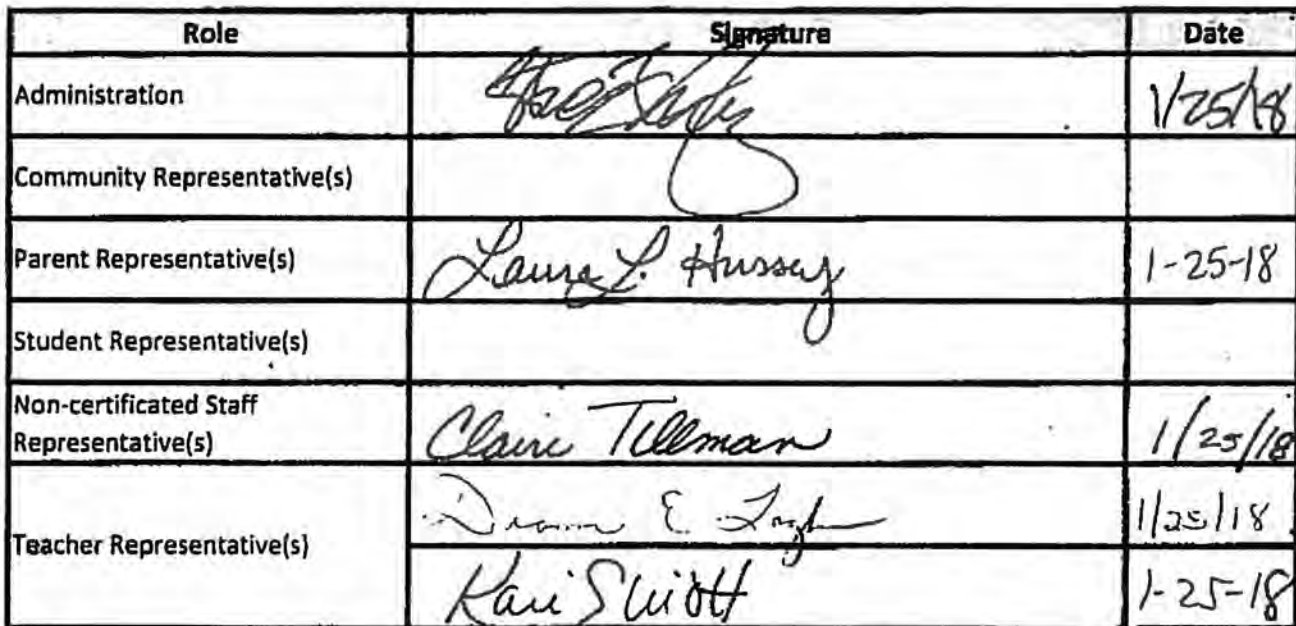 Role Signature Date
Administration 1/25/18
Community Representative(s)
Parent Representative(s) Laura L. Hussey 1-25-18
Student Representative(s)
Non-certificated Staff
Representative(s) Claire Tillman 1/25/18
E. 1/25/18
Teacher Representative(s)
Kari 1-25-18